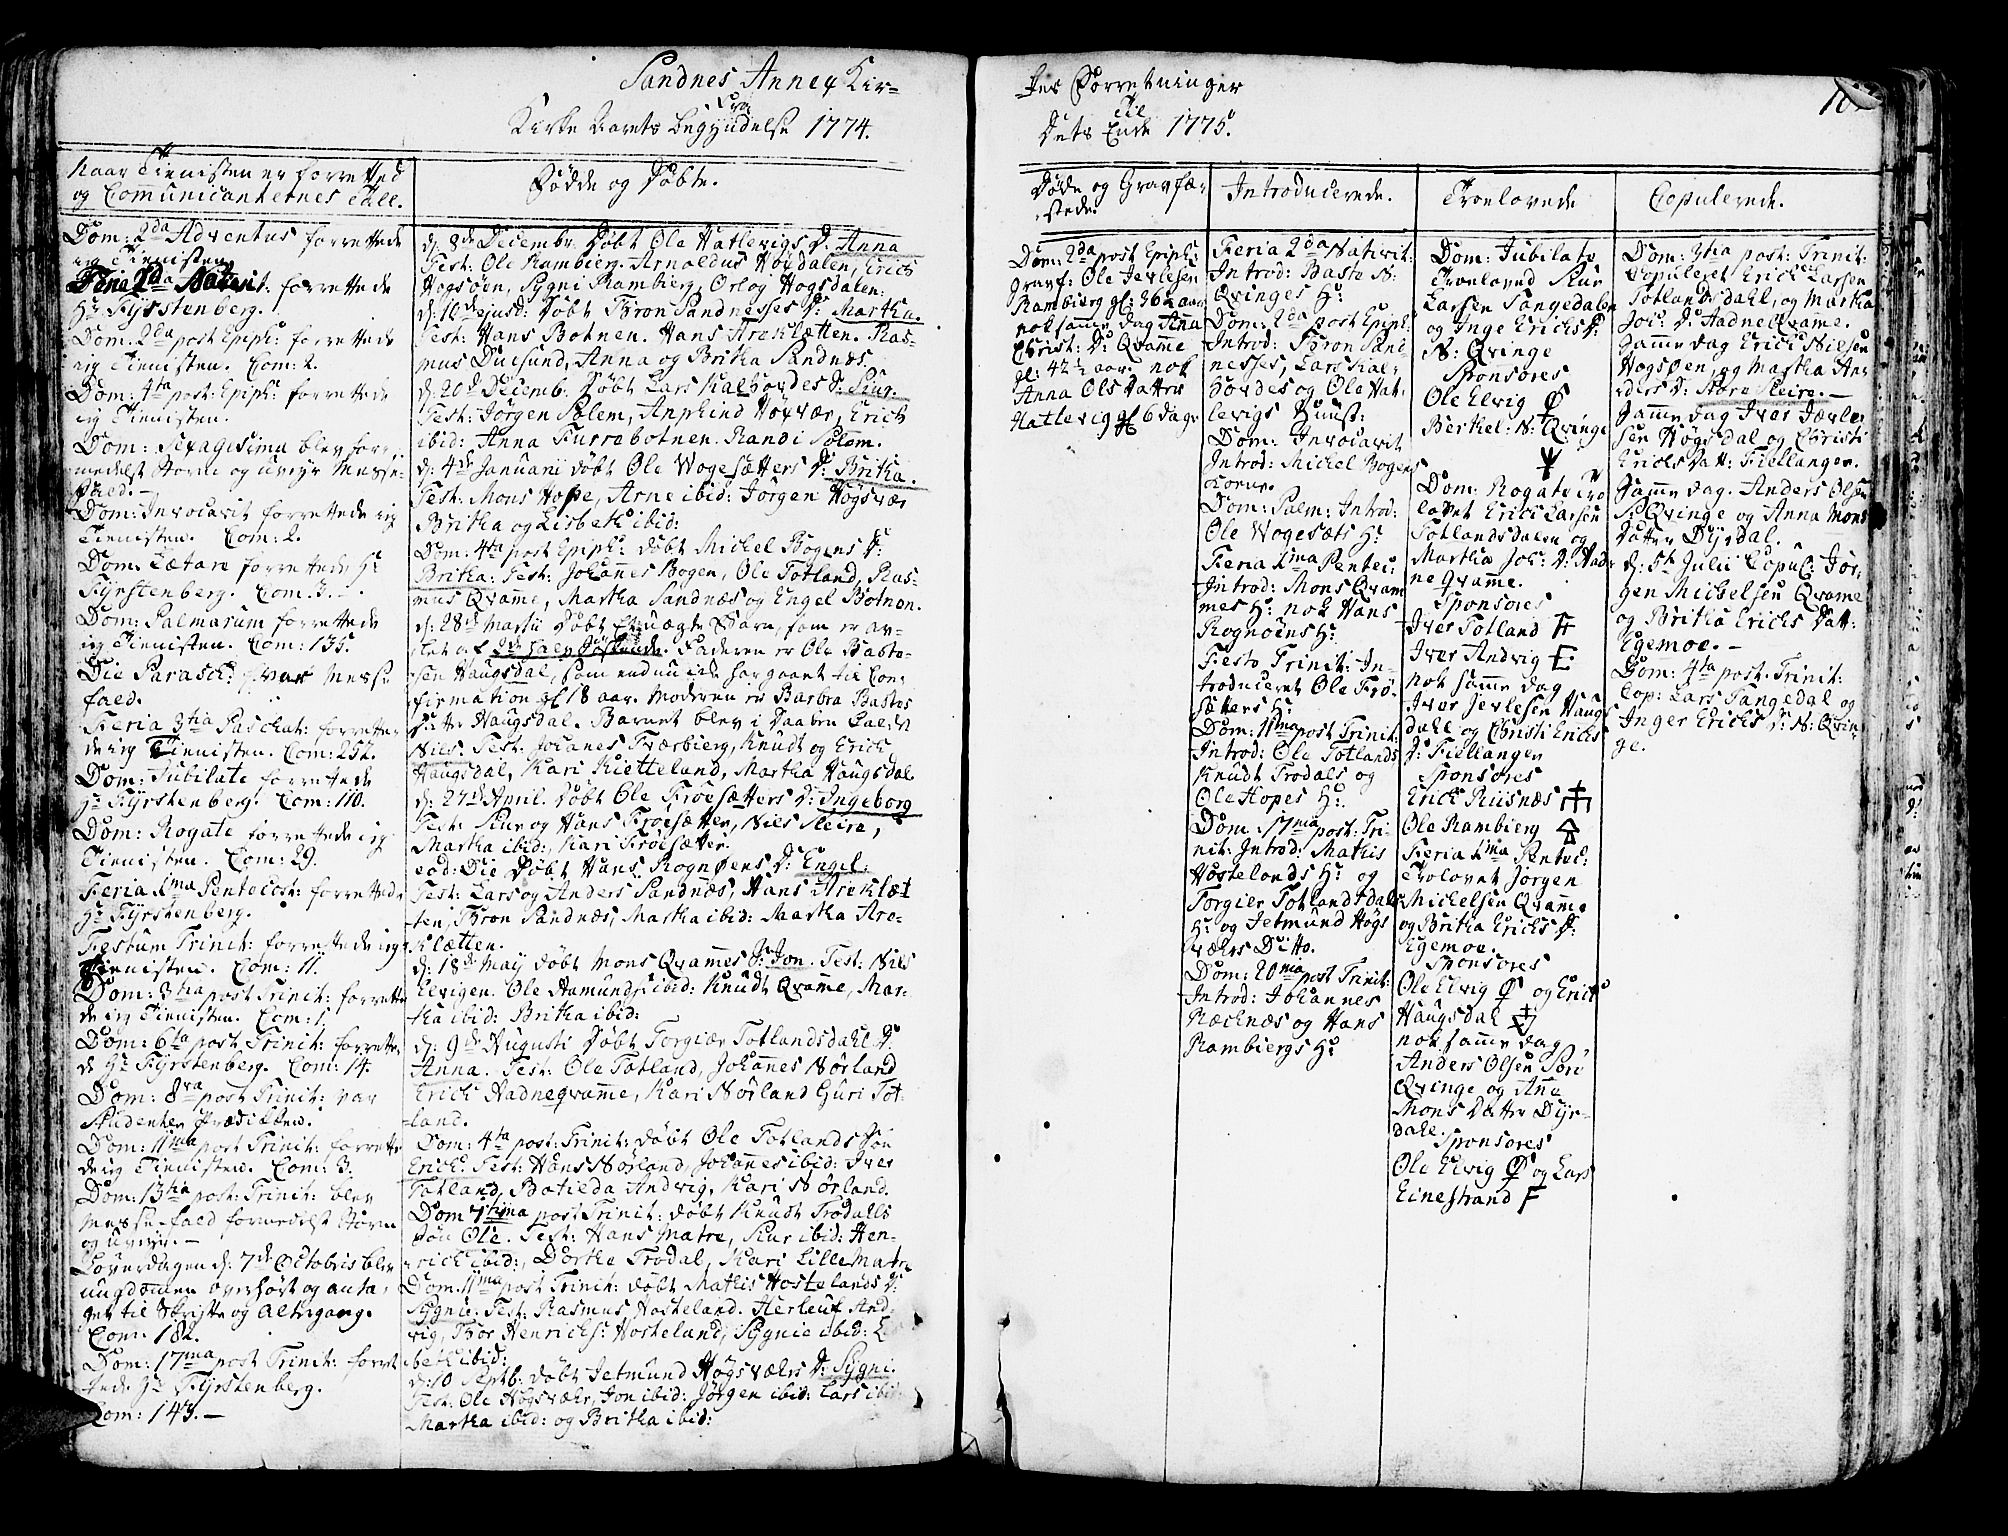 Sandnes Annex Kir=
Kirke Aarets begyndelse 1774.
Fra
Naar Tienisten er forretted
og Communicanternes Tall.
Dom: 2da Adventus forrettede
ieg Tienisten
Feria 2da Nativit: forrettede
Hr Fyrstenberg.
Dom. 2da post Epiph: forrettede
ieg Tienisten. Com: 2.
Dom: 4ta post: Epiph: forrettede
ieg Tienisten.
Dom: Sexagesima blev forme
medelst Storm og uveyr Messe=
fald.
Dom: Invocavit forrettede ieg
Tienisten. Com: 2.
Dom: Lætare forrettede Hr
Fyrstenberg. Com: 3.
Dom: Palmarum forrettede
ieg Tienisten. Com: 135.
Die Parasch: var Messe
fald.
Feria 3tia Paschat: forrette=
de ieg Tienisten. Com: 252.
Dom: Jubilate forrettede
Hr Fyrstenberg. Com: 110.
Dom: Rogate forrettede ieg
Tienisten. Com: 29.
Feria 1ma Pentecost: forrettede
Hr Fyrstenberg.
Festum Trinit: forrettede ieg
Tienisten. Com: 11.
Dom: 3tia post Trinit: forrette
de ieg Tienisten. Com: 1.
Dom: 6ta post Trinit: forrette
de Hr Fyrstenberg. Com: 14.
Dom: 8va post Trinit: var
Studenter Prædicken.
Dom: 11ma post Trinit: forrette
de ieg Tienisten. Com: 3.
Dom: 13tia post: Trinit: blev
Messe=fald formedelst Storm
og uveyr.
Løverdagen d: 7de Octobris blev
ungdommen overhørt og anta=
get til Skrifte og Altergang.
Com: 182.
Dom: 17ma post Trinit: forret
tede Hr Fyrstenberg.
Com: 143.
Fødde og Døbte.
d: 8de Decembr. Døbt Ole Hatlevigs D: Anna
Test: Ole Ramberg. Arnoldus Høydalen, Erich
Hogsøen, Sygni Ramberg, Orlog Hogsdalen.
d: 16de ejusd: Døbt Thron Sandnesses D: Martha.
Test: Hans Botnen. Hans Areklætten. Ras=
mus Duesund, Anna og Britha Sandnæs.
d: 20de Decemb. Døbt Lars Kalhovdes D: Siug.
Test: Jørgen Solem, Anphind Høyvær, Erich
ibid: Anna Furrebotnen. Randi Solem.
d: 4de Januarii døbt Ole Wogesætters D: Britha.
Test: Mons Hope, Arne ibid: Jørgen Høgsvær
Britha og Lisbeth ibid:
Dom: 4ta post Epiph: døbt Michel Bogens D:
Britha: Test: Johannes Bogen, Ole Totland, Ras=
mus Qvamme, Martha Sandnæs og Engel Botnen.
d: 28de Martii Døbt Et uægte Barn, som er av=
let af Faderen er Ole Basto=
sen Haugsdal, som endnu icke har gaaet til Con=
firmation gl 18 aar. Moderen er Barbra Bastes
Datter Haugsdal. Barnet blev i Daaben kaldet
Niels. Test: Johanes Tverbierg, Knudt og Erich
Haugsdal, Kari Kietteland, Martha Haugsdal.
d: 27de April. døbt Ole Frøesætters D: Ingeborg
Test: Siur og Hans Frøesætter, Niels Sleire,
Martha ibid: Kari Frøesetter.
eod: Die døbt Hans Rognøens D: Engel:
Test: Lars og Anders Sandnæs, Hans Areklæt
ten, Thron Sandnæs, Martha ibid: Martha Are=
klætten.
d: 18de May døbt Mons Qvammes S: Jon. Test: Niels
Elvigen. Ole Aamunds: ibid: Knudt Qvame, Mar=
tha ibid: Britha ibid:
d: 9de Augusti døbt Torgier Totlandsdahl D:
Anna. Test: Ole Totland, Johannes Nørland
Erich Aadneqvamme, Kari Nørland Guri Tot=
land.
Dom: 4ta post: Trinit: døbt Ole Totlands Søn
Erich: Test: Hans Nørland, Johannes ibid: Iver
Totland, Batilda Andvig, Kari Nørland.
Dom 7tima post Trinit: døbt Knudt Trodalls
Søn Ole. Test: Hans Matre, Siur ibid: Hen=
rich ibid:, Dorthe Trodal, Kari Lille Matre
Dom: 11ma post Trinit: døbt Mathis Hostelands D:
Sygnie. Test: Rasmus Hosteland. Herleuf And=
vig, Thor Henrichs: Hosteland, Sygnie ibid:
beth ibid:
d: 10 Septb. døbt Jetmund Høgsværs D: Sygni.
Test: Ole Høgsvær, Jon ibid: Jørgen ibid: Lars ibid:
Martha ibid: og Britha ibid:
kes Forretninger
Til
Dets Ende 1775.
Døde og Gravfæ=
stede.
Dom: 2da post Epiph:
Gravf: Ole Jerlesen
Rambierg gl: 26 aar
nok samme dag Anna
Christ: D: Qvamme
gl: 42½ aar. nok
Anna Ols Datter
Hatlevig gl 6 dage
Introducerede.
Feria 2da Nativit:
Introd: Baste N:
Qvinges H:
Dom: 2da post Epiph:
Introd: Thron Sand
nesses, Lars Kal=
hovdes og Ole Hat=
levigs Huust:
Dom: Invocavit
Introd: Michel Bogens
kone.
Dom: Palm: Introd:
Ole Wogesæts H:
Feria 1ma Pentec:
Introd: Mons Qvam
mes H: nok Hans
Rognøens H:
Festo Trinit: In=
troduceret Ole Frø=
sætters H:
Dom: 11ma post Trinit:
Introd: Ole Totlands
Knudt Trodals og
Ole Hopes H:
Dom: 17ma post: Tri=
nit: Introd: Mathis
Hostelands H: og
Torgier Totlandsdals
H: og Jetmund Høgs
værs Ditto.
Dom: 20ma post Trinit:
Introd: Johannes
Ræcknæs og Hans
Rambiergs H:
Troelovede
Dom: Jubilate
Troeloved Siur
Larsen Tangedalen
og Inge Erichs D:
N: Qvinge
Sponsores
Ole Elvig
Berthel: N: Qvinge
Dom: Rogate tro
lovet Erich Larsen
Totlandsdalen og
Martha Joh: D: Aad=
ne Qvamme.
Sponsores
Iver Totland
Iver Andvig
nok samme dag
Iver Jerlesen Haugs
dahl og Christi Erichs
D: Fiellanger
Sponsores
Erich Riisnæs
Ole Rambierg
Feria 1ma Pentec:
Trolovet Jørgen
Michelsen Qvame
og Britha Erichs D:
Egemoe.
Sponsores
Ole Elvig og Erich
Haugsdal
nok samme dag
Anders Olsen Søre
Qvinge og Anne
Mons Datter Dyr=
dahl.
Sponsores
Ole Elvig og Lars
Einestrand
Copulerede.
Dom: 3tia post: Trinit:
Copuleret Erich Larsen
Totlandsdahl, og Martha
Joh: D: Aadne Qvame.
Samme dag Erich Nilsen
Hogsøen, og Martha An=
ders D: Nore Sleire.
Samme dag Iver Jerle=
sen Høgsdal og Christi
Erichs Datt: Fiellanger.
Samme dag. Anders Olsen
S: Qvinge og Anna Mons
Datter Dyrdal.
d: 5te Julii Copul: Jør=
gen Michelsen Qvame
og Britha Erichs Datt:
Egemoe.
Dom: 4ta post: Trinit:
Cop: Lars Tangedal og
Inger Erichs D: N: Qvin
ge.